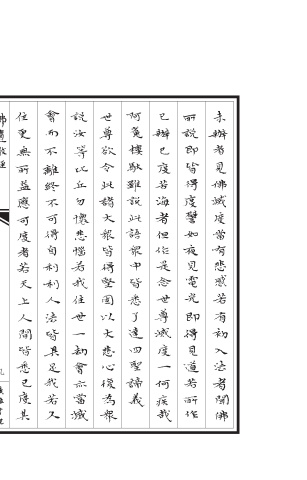 未辦者見佛滅度當有悲感若有初入法者聞佛
所說即皆得度譬如夜見電光即得見道若所作
已辦已度苦海者但作是念世尊滅度一何疾哉
阿㝹樓馱雖說此語眾中皆悉了達四聖諦義
世尊欲令此諸大眾皆得堅固以大悲心復為眾
說汝等比丘勿懷悲惱若我住世一劫會亦當滅
會而不離終不可得自利利人法皆具足我若久
住更無所益應可度者若天上人間皆悉已度其
佛遺教經